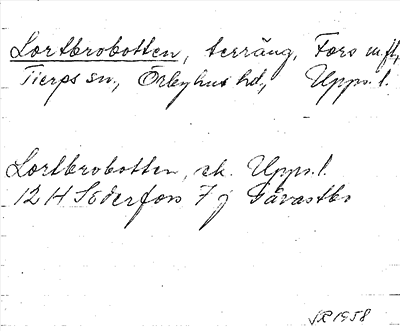 Lortbrobotten, terräng, Fors m.fl.,
Tierps sn., Örbyhus hd., Upps. l.
Lortbrobotten, ek. Upps. l.
12 H Söderfors 7 j Tavastbo
SR 1958